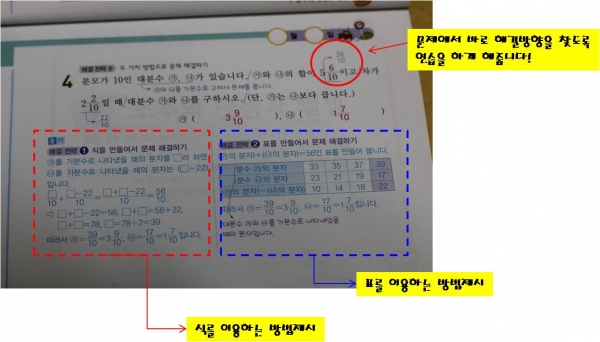 월 일
56/10
문제에서 바로 해결방향을 찾도록
연습을 하게 해줍니다!
해결 전략 6 두 가지 방법으로 문제 해결하기
4 분모가 10인 대분수 ㉮, ㉯가 있습니다./㉮와 ㉯의 합이 5 6/10이고/차가
㉮와 ㉯를 가분수로 고쳐서 문제를 풉니다.
2 2/10일 때/대분수 ㉮와 ㉯를 구하시오./(단, ㉮는 ㉯보다 큽니다.)
22/10
㉮ ( 3 9/10 ), ㉯ ( 1 7/10 )
해결 전략 1 식을 만들어서 문제 해결하기
㉮를 가분수로 나타냈을 때의 분자를 □라 하면
㉯를 가분수로 나타냈을 때의 분자는 (□-22)
입니다.
□/10+□-22/10=□+□-22/10=56/10
⇨ □+□-22=56, □+□=56+22,
□+□=78, □=78÷2=39
따라서 ㉮=39/10=3 9/10, ㉯=17/10=1 7/10입니다.
해결 전략 2 표를 만들어서 문제 해결하기
(㉮의 분자)+(㉯의 분자)=56인 표를 만들어 봅니다.
분수 ㉮의 분자 33 35 37 39
분수 ㉯의 분자 23 21 19 17
(㉮의 분자)-(㉯의 분자) 10 14 18 22
따라서 ㉮=39/10=3 9/10, ㉯=17/10=1 7/10입니다.
대분수 ㉮와 ㉯를 가분수로 나타내었을
때의 분자입니다.
표를 이용하는 방법제시
식를 이용하는 방법제시